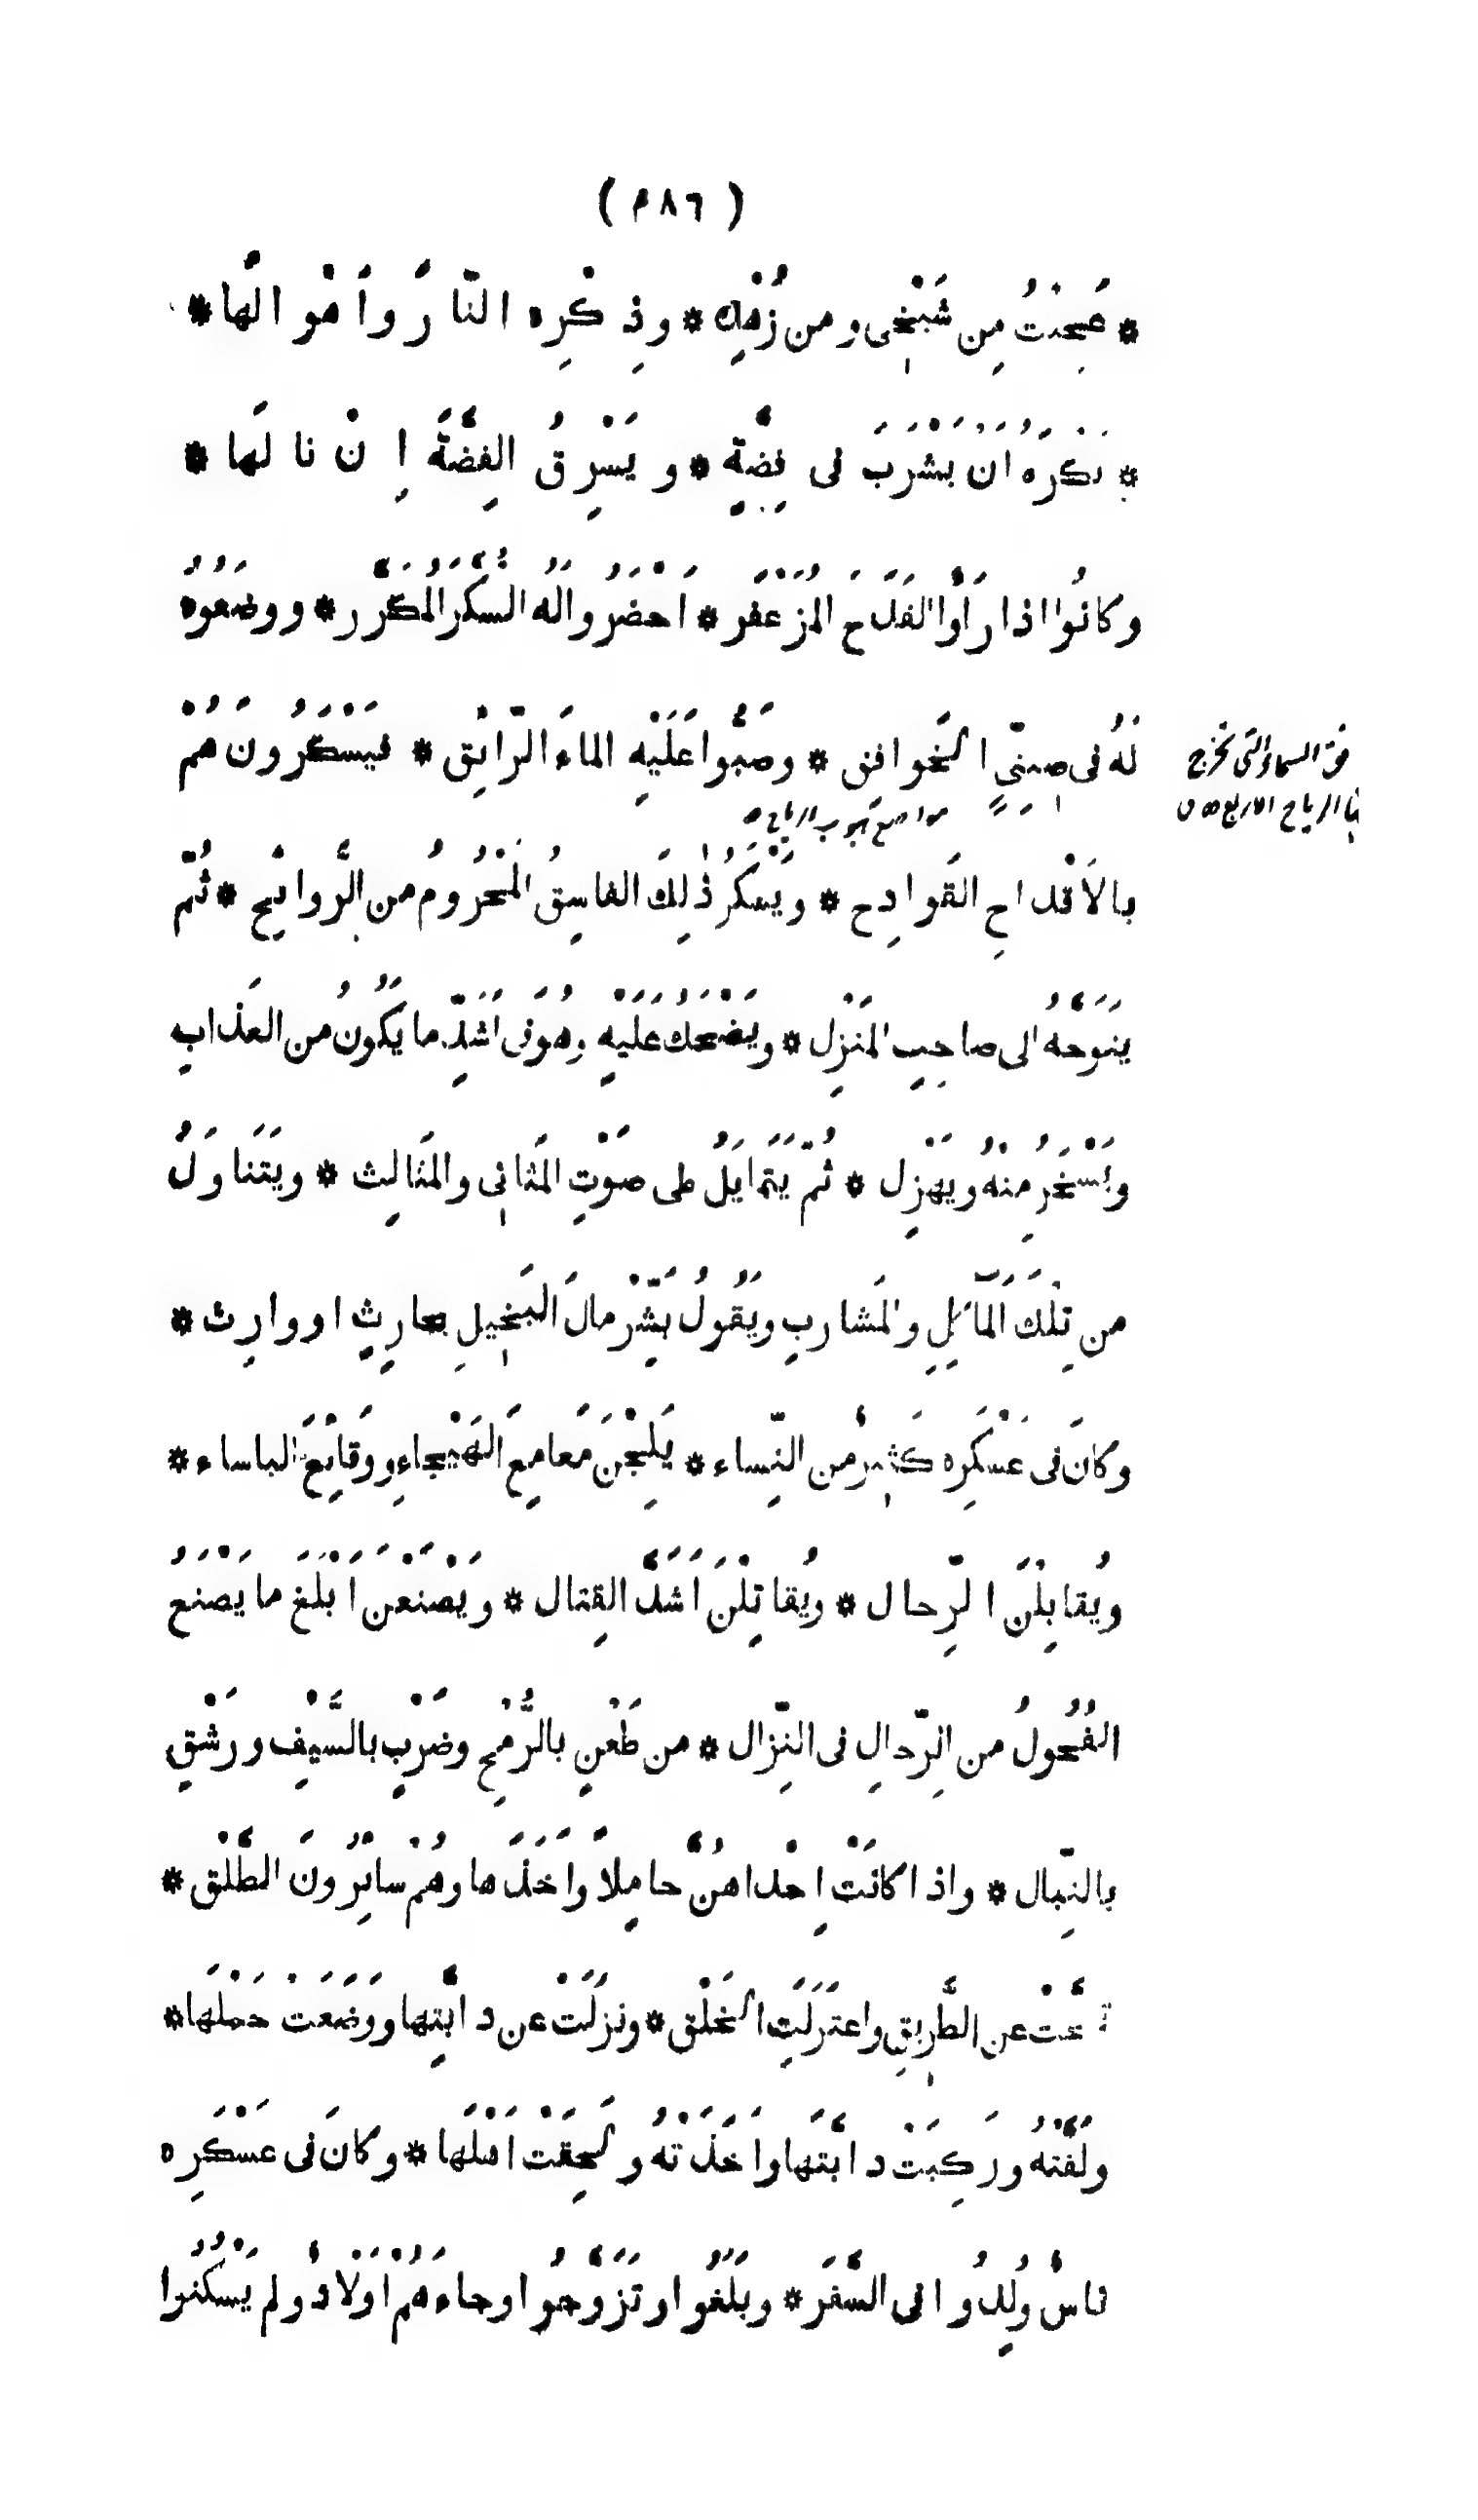 ( ٤٨٦ )
* عَجِبْتُ مِن شَيْخِى ومن زُهْدِه * وذِ كْرِه النّارَ واَهْوالَها *
* يَكْرَهُ اَنْ يَشْرَبَ فى فِضَّةٍ * و يَسْرِقُ الفِضَّةَ اِ نْ نا لَها *
وكانُوا اذا رَاَوْا القَدَحَ المُزَعْفَر * اَحْضَرُوا لَهُ السُّكَّرَ المُكَرَّر * ووضَعُوهُ
لَهُ فى صِينِىٍّ الخَوافِق * وصَبُّوا عَلَيْهِ الماءَ الرّائِق * فيَسْكَرُونَ هُمْ
فى السماء التى تخرج
منها الرياح الاربع
مواضع هبوب الرياح
بالاَقْداحِ القَوادِح * ويَسْكَرُ ذٰلِكَ الفاسِقُ المَحْرُومُ من الرَّوائِحِ * ثُمّ
يَتَوجّهُ الى صاحِبِ المَنْزِل * ويَضْحَكُ عَلَيْهِ وهُوَ فى اَشَدِّ ما يَكُونُ من العَذابِ
ويَسْخَرُ مِنْهُ ويَهْزِل * ثُمّ يَتَمايَلُ على صَوْتِ المَثانى والمَثالِث * ويَتَناوَلُ
من تِلْكَ المَآكِلِ والمَشارِبِ ويَقُولُ بَشِّرْ مالَ البَخِيلِ بحارِثٍ او وارِث *
وكانَ فى عَسْكَرِه كَثِيرٌ من النِّساء * يَلِجْنَ مَعامِعَ الهَيْجاءِ ووَقائِعَ الباساء *
ويُقابِلْنَ الرِّجال * ويُقاتِلْنَ اَشَدَّ القِتال * ويَصْنَعْنَ اَبْلَغَ ما يَصْنَعُ
الفُحُولُ من الرِّجالِ فى النِّزال * من طَعْنٍ بالرُّمْحِ وضَرْبٍ بالسَّيْفِ ورَشْقٍ
بالنِّبال * واذا كانَتْ اِحْداهُنَّ حامِلاً واَخَذَها وهُمْ سائِرُونَ الطَّلْق *
تَنَحَّتْ عن الطَّرِيقِ واعتَزَلَتِ الخَلْق * ونَزَلَتْ عن دابَّتِها ووَضَعَتْ حَمْلَها *
ولَفَّتْهُ ورَكِبَتْ دابَّتَها واَخَذَتْهُ ولَحِقَتْ اَهْلَها * وكانَ فى عَسْكَرِه
ناسٌ وُلِدُوا فى السَّفَر * وبَلَغُوا وتَزَوَّجُوا وجاءَهُمْ اَوْلادٌ ولم يَسْكُنُوا